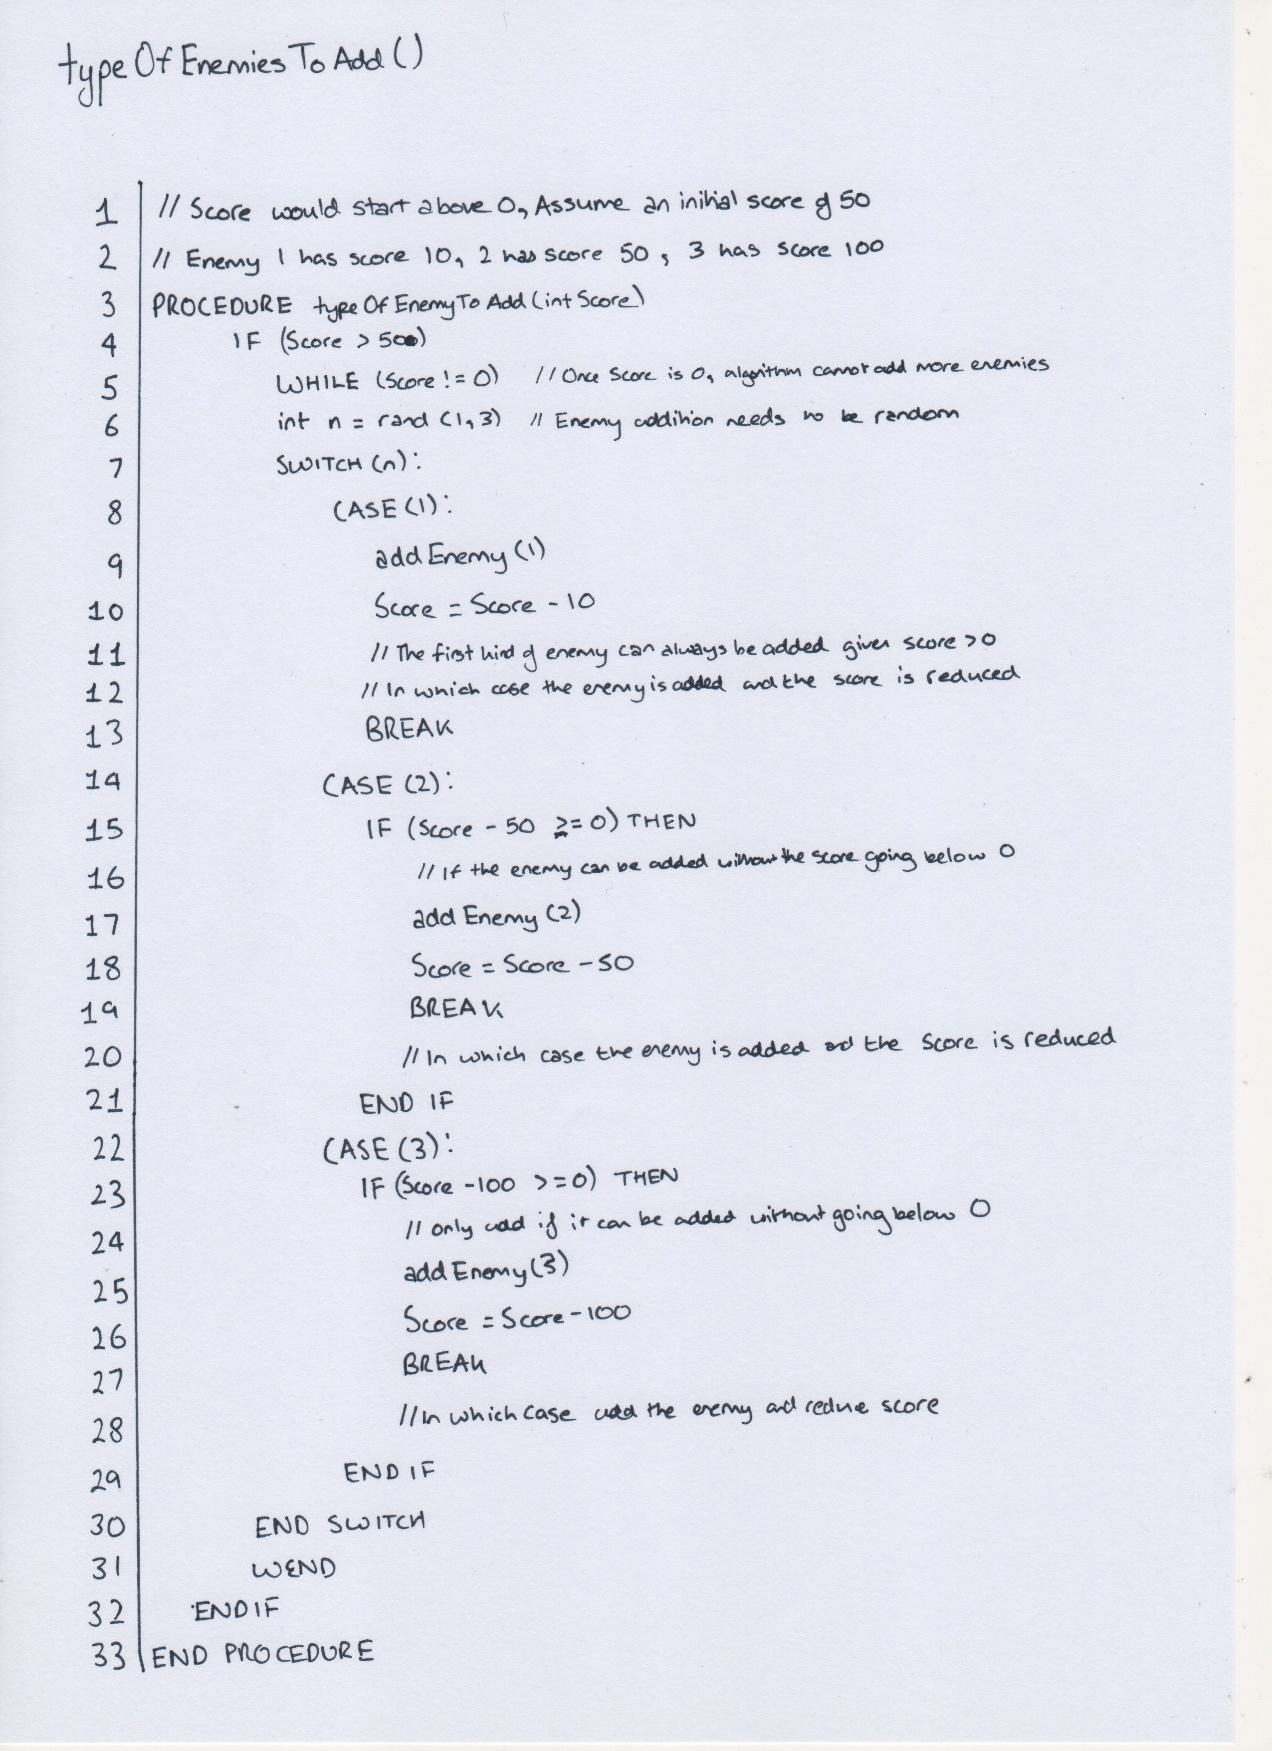 typeOfEnemiesToAdd()
1 // Score would start above 0, Assume an initial score of 50
2 // Enemy 1 has score 10, 2 has score 50, 3 has score 100
3 PROCEDURE typeOfEnemyToAdd(int Score)
4 IF (Score > 500)
5 WHILE (Score != 0) // Once Score is 0, algorithm cannot add more enemies
6 int n = rand (1,3) // Enemy addition needs to be random
7 SWITCH (n):
8 CASE (1):
9 addEnemy(1)
10 Score = Score - 10
11 // The first kind of enemy can always be added given score > 0
12 // In which case the enemy is added and the score is reduced
13 BREAK
14 CASE (2):
15 IF (Score - 50 >= 0) THEN
16 // If the enemy can be added without the score going below 0
17 addEnemy(2)
18 Score = Score - 50
19 BREAK
20 // In which case the enemy is added and the Score is reduced
21 END IF
22 CASE (3):
23 IF (Score - 100 >= 0) THEN
24 // only add if it can be added without going below 0
25 addEnemy(3)
26 Score = Score - 100
27 BREAK
28 // In which case add the enemy and reduce score
29 END IF
30 END SWITCH
31 WEND
32 ENDIF
33 END PROCEDURE